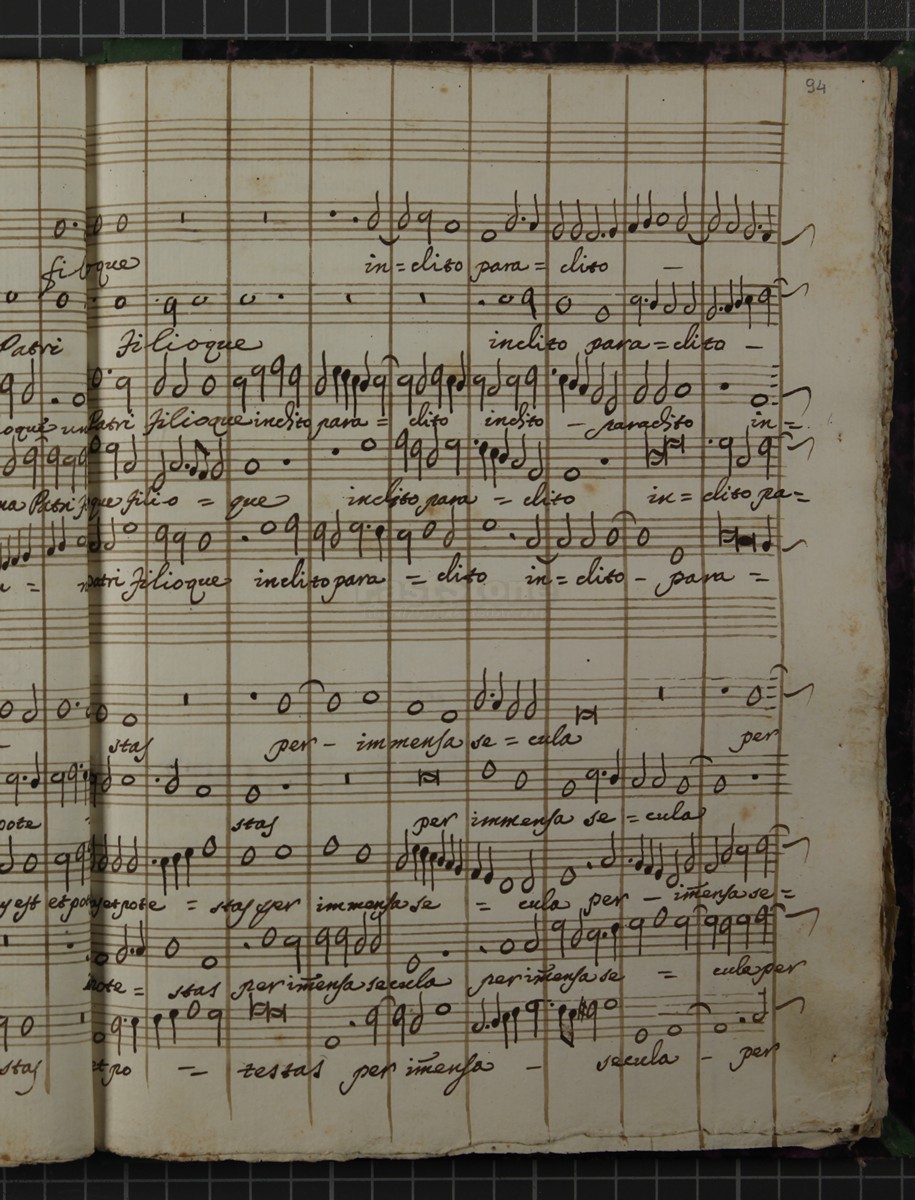 94
filioque in=clito para= clito -
Patri Filioque inclito para=clito -
Patri Filioque inclito para= clito inclito - paraclito in=
Patri que Filio = que inclito para = clito in= clito pa=
Patri Filioque inclito para = clito in=clito - para =
stas per- immensa se=cula per
pote stas per immensa se=cula
est et pote = stas per immensa se = cula per - im̄ensa se=
pote= stas per im̄ensa secula per im̄ensa se = cula per
stas et po = testas per im̄ensa - secula - per